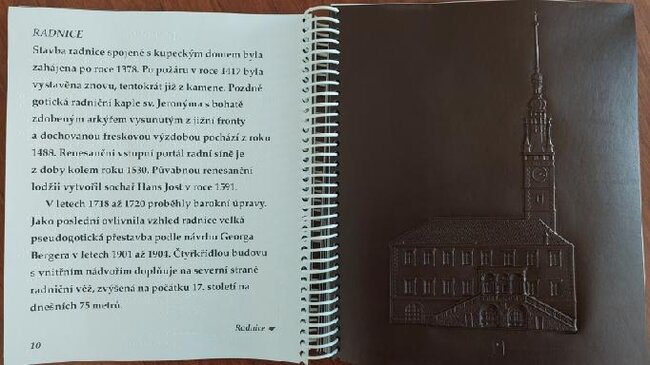 RADNICE
Stavba radnice spojené s kupeckým domem byla
zahájena po roce 1378. Po požáru v roce 1417 byla
vystavěna znovu, tentokrát již z kamene. Pozdně
gotická radniční kaple sv. Jeronýma s bohatě
zdobeným arkýřem vysunutým z jižní fronty
a dochovanou freskovou výzdobou pochází z roku
1488. Renesanční vstupní portál radní síně je
z doby kolem roku 1530. Půvabnou renesanční
lodžii vytvořil sochař Hans Jost v roce 1591.
V letech 1718 až 1720 proběhly barokní úpravy.
Jako poslední ovlivnila vzhled radnice velká
pseudogotická přestavba podle návrhu Georga
Bergera v letech 1901 až 1904. Čtyřkřídlou budovu
s vnitřním nádvořím doplňuje na severní straně
radniční věž, zvýšená na počátku 17. století na
dnešních 75 metrů.
Radnice ☛
10